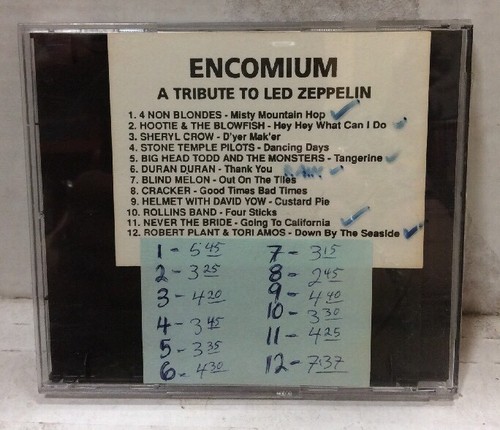 ENCOMIUM
A TRIBUTE TO LED ZEPPELIN
1. 4 NON BLONDES - Misty Mountain Hop
2. HOOTIE & THE BLOWFISH - Hey Hey What Can I Do
3. SHERYL CROW - D'yer Mak'er
4. STONE TEMPLE PILOTS - Dancing Days
5. BIG HEAD TODD AND THE MONSTERS - Tangerine
6. DURAN DURAN - Thank You
7. BLIND MELON - Out On The Tiles
8. CRACKER - Good Times Bad Times
9. HELMET WITH DAVID YOW - Custard Pie
10. ROLLINS BAND - Four Sticks
11. NEVER THE BRIDE - Going To California
12. ROBERT PLANT & TORI AMOS - Down By The Seaside
1 - 5 45
2 - 3 25
3 - 4 20
4 - 3 45
5 - 3 35
6 - 4 30
7 - 3 15
8 - 2 45
9 - 4 40
10 - 3 30
11 - 4 25
12 - 7:37